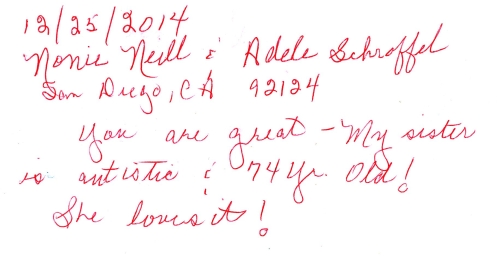 12/25/2014
Nonie Neill & Adele Schroffel
San Diego, CA 92124
You are great - My sister
is autistic & 74 yr. old!
She loves it!